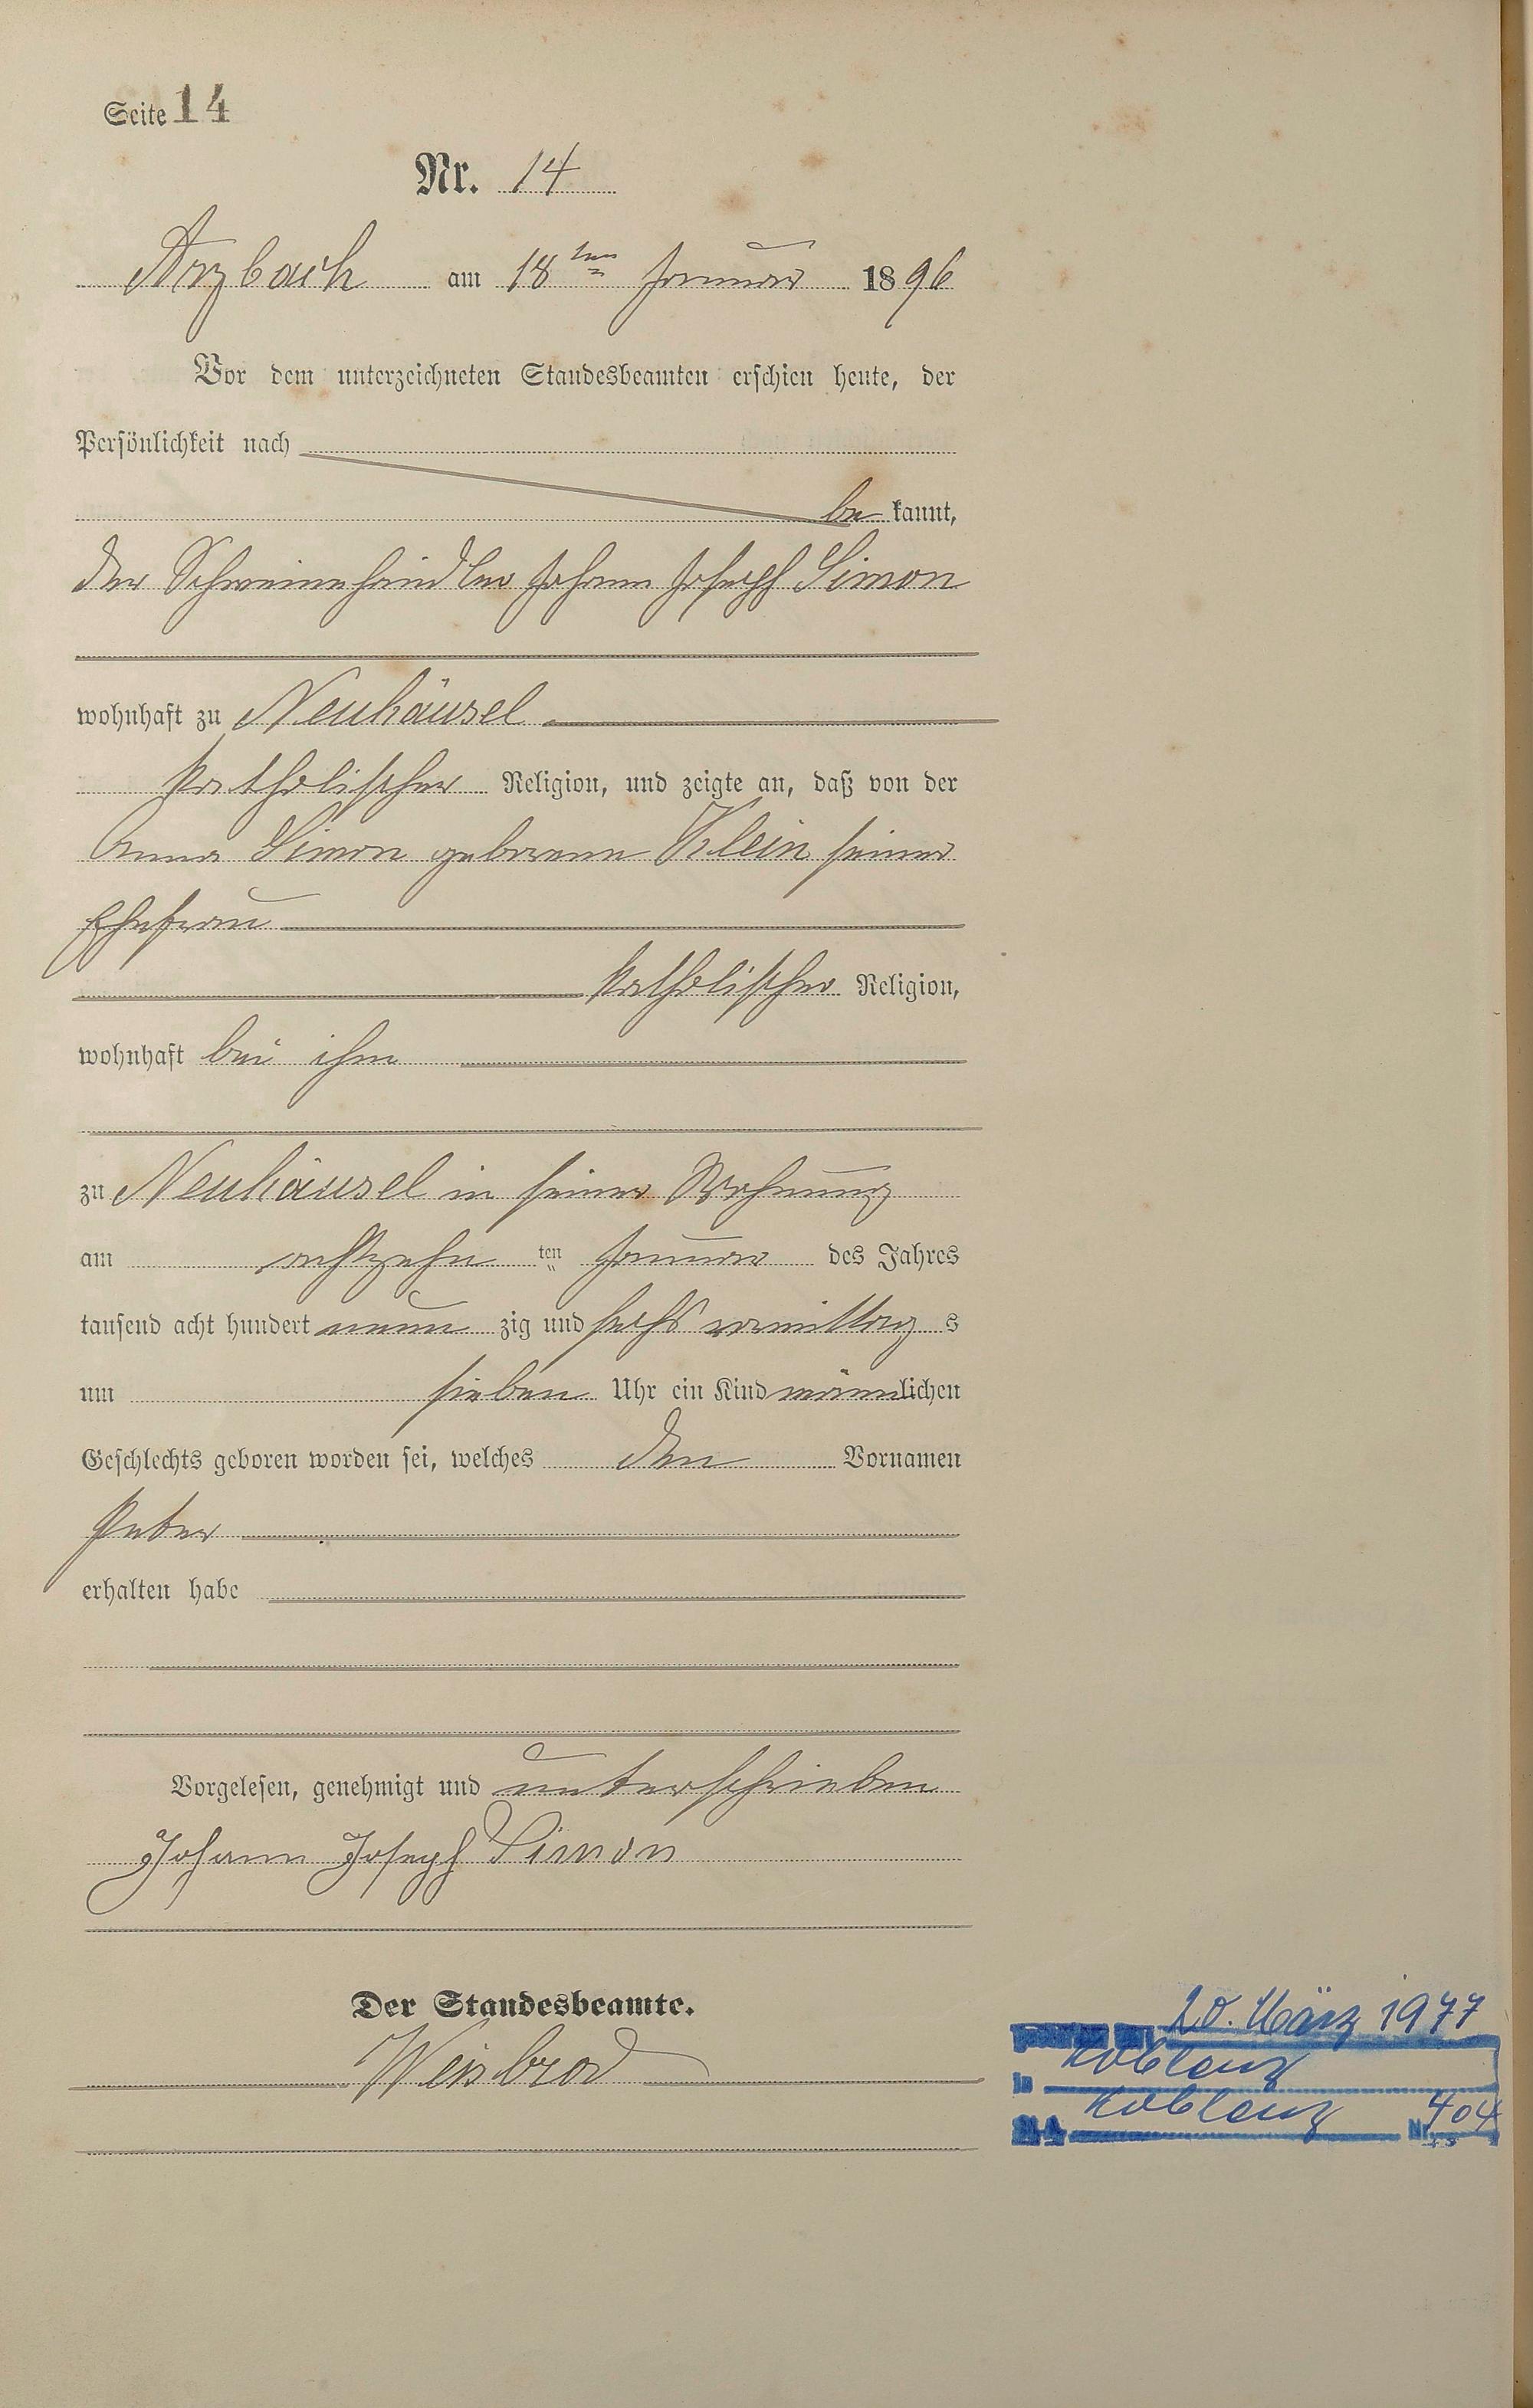 Seite 14
Nr. 14
Arzbach am 18ten Januar 1896
Vor dem unterzeichneten Standesbeamten erschien heute, der
Persönlichkeit nach
be kannt,
der Schweinehändler Johann Joseph Simon
wohnhaft zu Neuhäusel
katholischer Religion, und zeigte an, daß von der
Anna Simon geborene Klein seiner
Ehefrau
katholischer Religion,
wohnhaft bei ihm
zu Neuhäusel in seiner Wohnung
am achtzehn ten Januar des Jahres
tausend acht hundert neun zig und sechs vormittag s
um sieben Uhr ein Kind männlichen
Geschlechts geboren worden sei, welches den Vornamen
Peter
erhalten habe
Vorgelesen, genehmigt und unterschrieben
Johann Joseph Simon
Der Standesbeamte.
Weisbrod
20. März 1977
in Koblenz
Koblenz Nr. 404